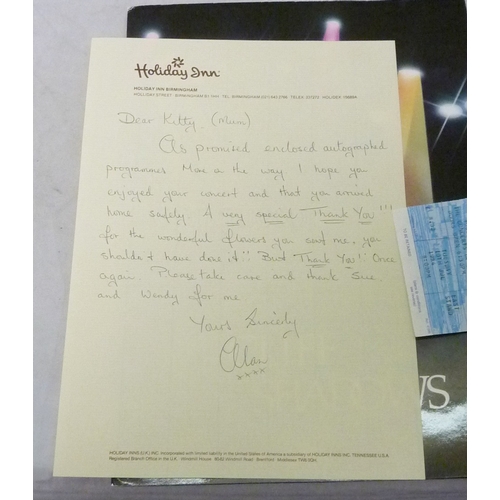 Holiday Inn
HOLIDAY INN BIRMINGHAM
HOLLIDAY STREET BIRMINGHAM B1 1HH TEL BIRMINGHAM (021) 643 2766 TELEX 337272 HOLIDEX
Dear Kitty (Mum)
As promised enclosed autographed
programmes More on the way I hope you
enjoyed your concert and that you arrived
home safely A very special Thank You!!!
for the wonderful flowers you sent me, you
shouldn't have done it!! But Thank You!! Once
again. Please take care and thank Sue
and Wendy for me
Yours Sincerely
Alan
xxxx
HOLIDAY INNS (U.K.) INC. incorporated with limited liability in the United States of America a subsidiary of HOLIDAY INNS INC. TENNESSEE U.S.A.
Registered Branch Office in the U.K. Windmill House Windmill Road Brentford Middlesex
WS